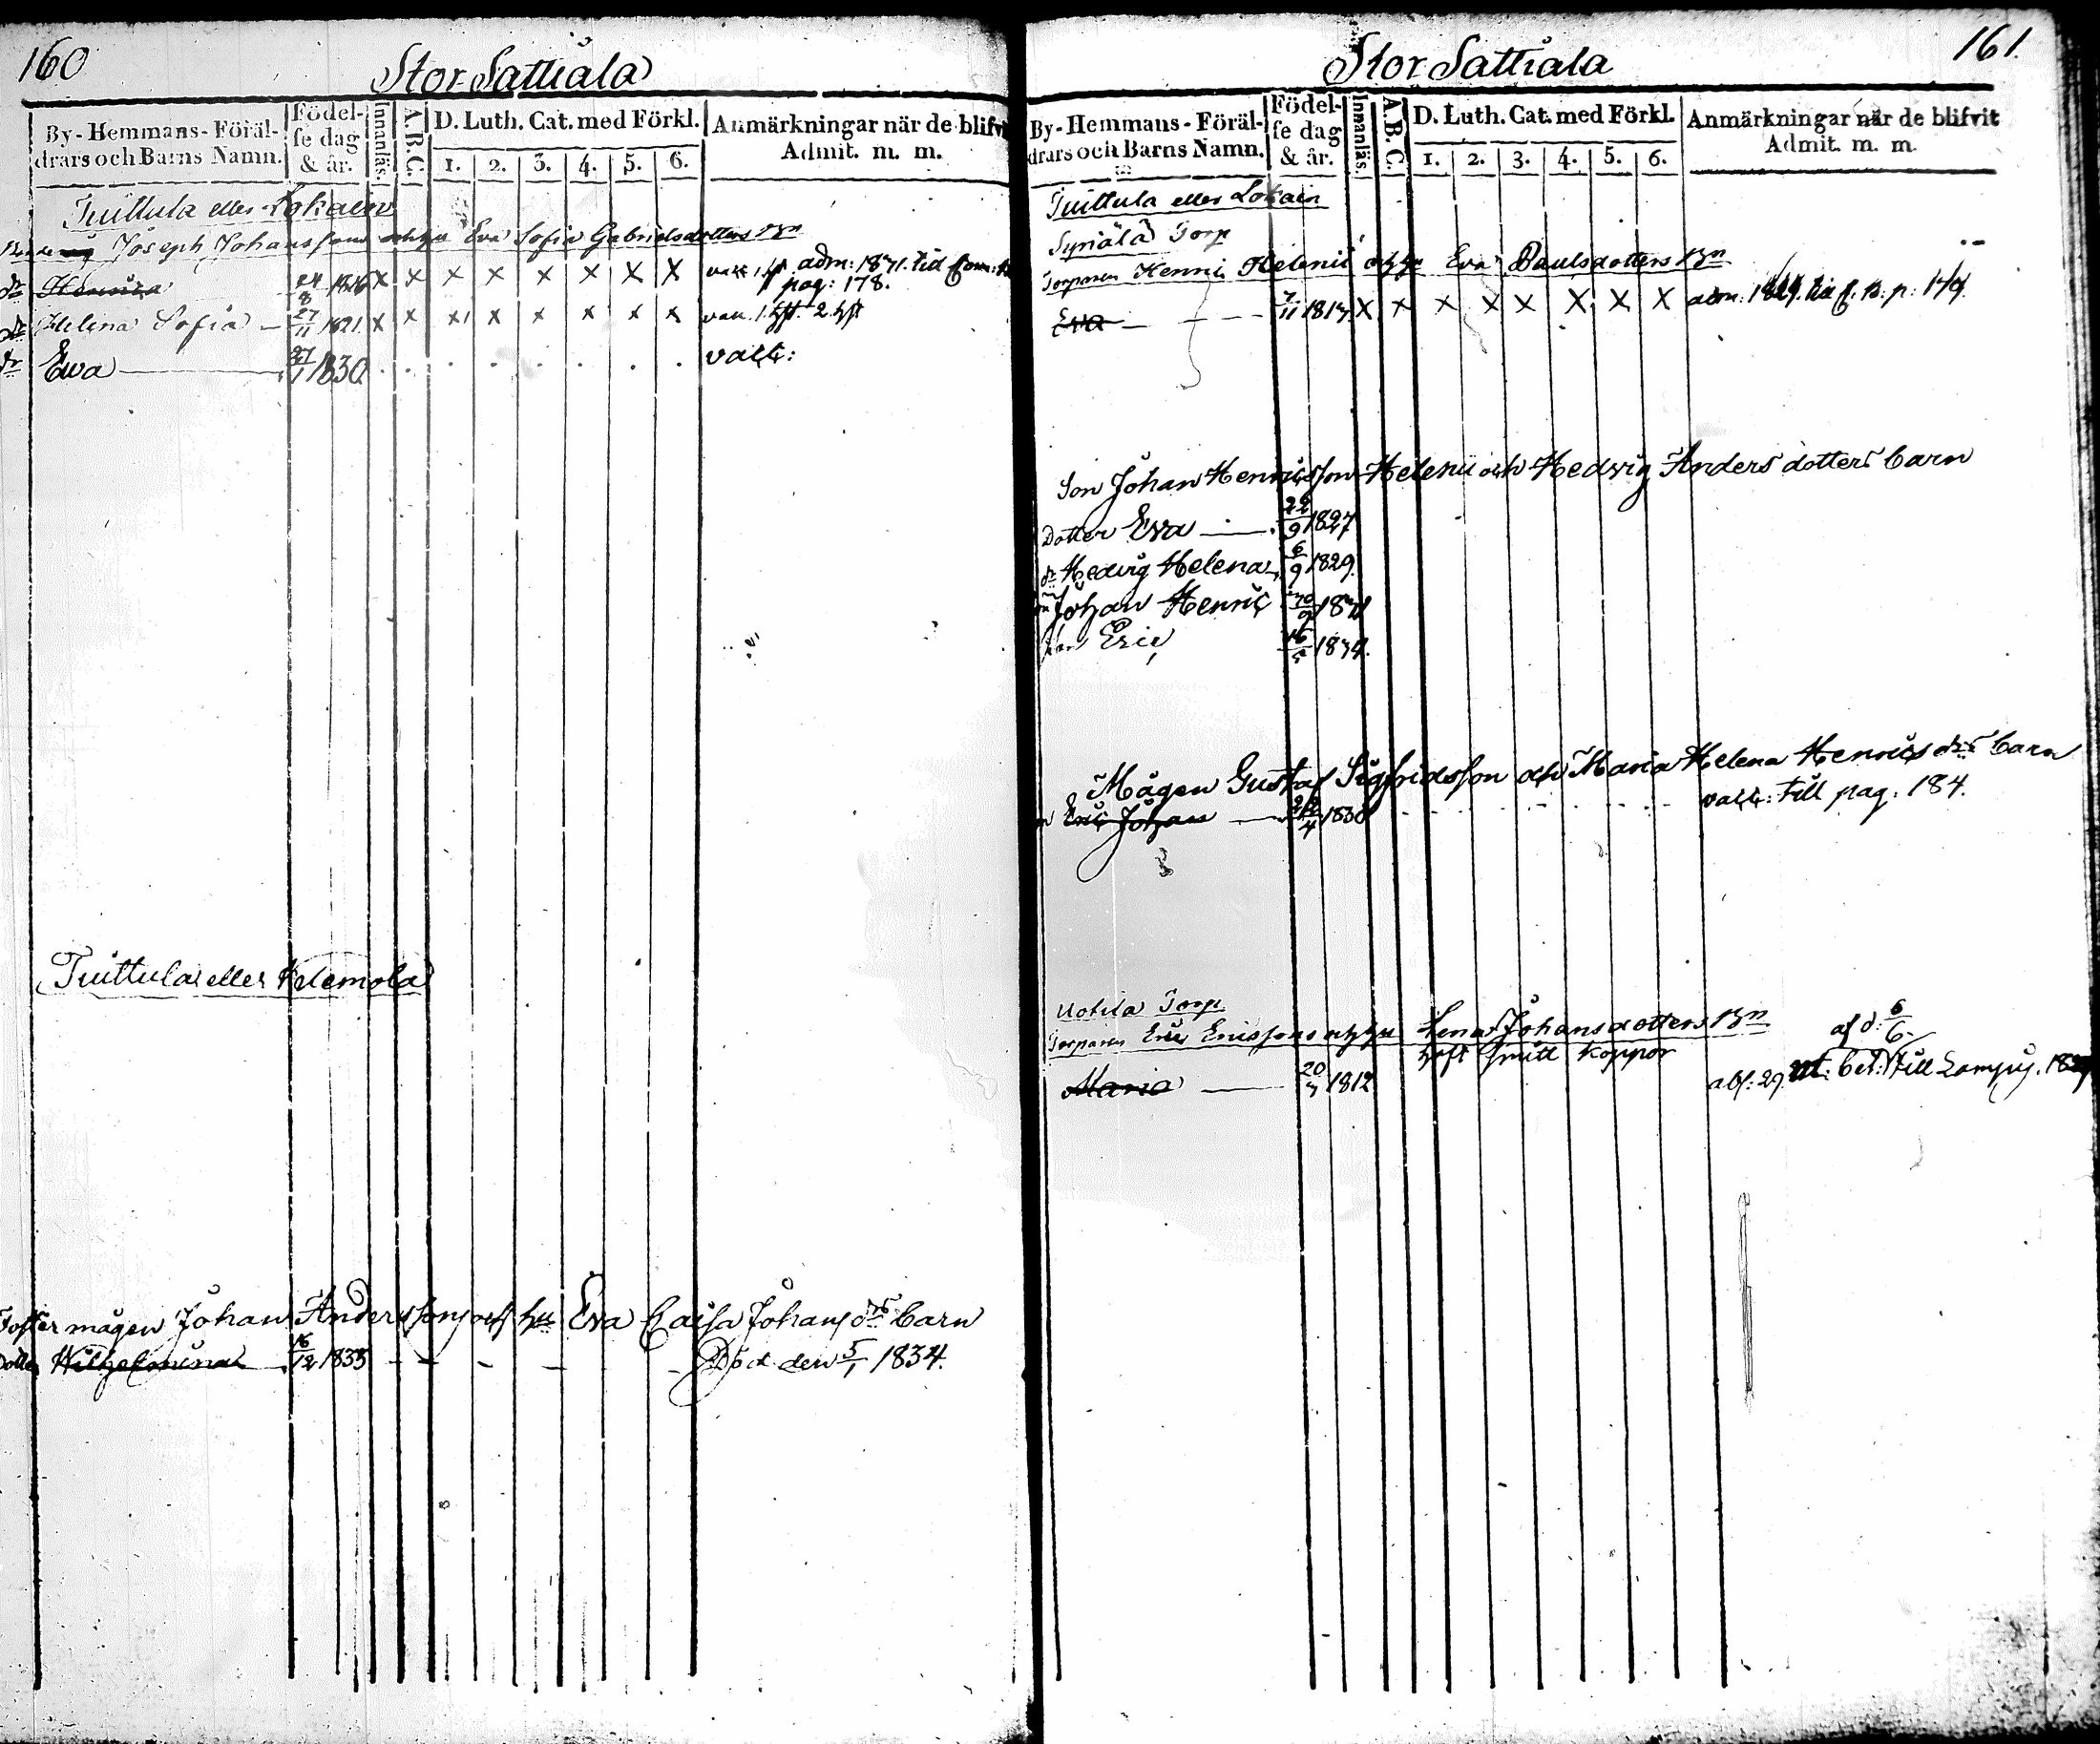 160
Stor Sattiala
By-Hemmans-Föräl-
drars och Barns Namn.
Födel-
se dag
& år.
Innanläs.
A.B.C.
D. Luth. Cat. med Förkl.
1. 2. 3. 4. 5. 6.
Anmärkningar när de blifvit
Admit. m. m.
Tuittula eller Lokain
Joseph Johanssons och hu Eva Sofia Gabrielsdotters Bn
dr Henrica 24/8 1816 x x x x x x x x vacc. adm: 1831. till
pag: 178.
dr Helina Sofia 27/11 1821. x x x x x x x x vacc. 1. hft. 2. hft
dr Ewa 27/1 1830 vacc:
Tuittula eller Klemola
Foster mågen Johan Anderssons och hu Eva Caisa Johans drs barn
Dotter Wilhelmina 16/12 1833 Död den 5/1 1834.
161.
Stor Sattiala
By-Hemmans-Föräl-
drars och Barns Namn.
Födel-
se dag
& år.
Innanläs.
A.B.C.
D. Luth. Cat. med Förkl.
1. 2. 3. 4. 5. 6.
Anmärkningar när de blifvit
Admit. m. m.
Tuittula eller Lokain
Syriälä Torp
Torparen Henric Helenii och hu Eva Paulsdotters Bn
Eva 7/11 1813 x x x x x x x x adm:
Son Johan Henricsson Helenii och Hedvig Anders dotters barn
Dotter Eva 22/9 1827
dr Hedvig Helena 6/9 1829.
Johan Henric 1831
Eric 16/5 1834.
Mågen Gustaf Sigfridsson och Maria Helena Henrics drs barn
Eric Johan 1830 vacc: till pag: 184.
Uotila Torp
Torparen Eric Ericssons och hu Lena Johansdotters Bn
haft koppor
af d: 6/6
Maria 20/3 1812 abs: 29. ut: bet: till